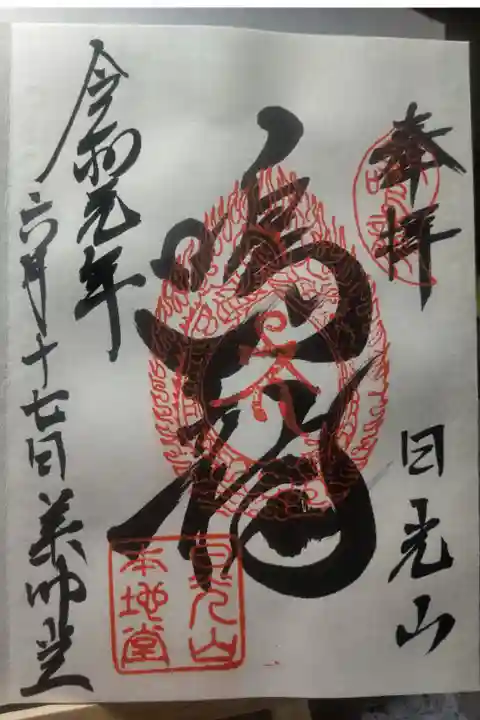 奉拝
日光山
鳴龍
日光山
本地堂
令和元年
六月十七日
薬師堂